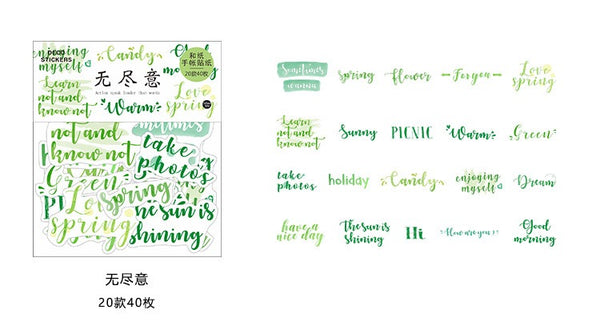 DECO
STICKERS
enjoying
myself
Candy
Good
morning
和纸
手帐贴纸
20款40枚
无尽意
Action speak louder than words
Learn
not and
know not
Warm
Love
spring
not and
know not
take
photos
Green
Spring
Love
spring
The sun is
shining
无尽意
20款40枚
Sometimes
wanna
spring
flower
For you
Love
spring
Learn
not and
know not
Sunny
PICNIC
Warm
Green
take
photos
holiday
Candy
enjoying
myself
Dream
have a
nice day
The sun is
shining
Hi
How are you?
Good
morning